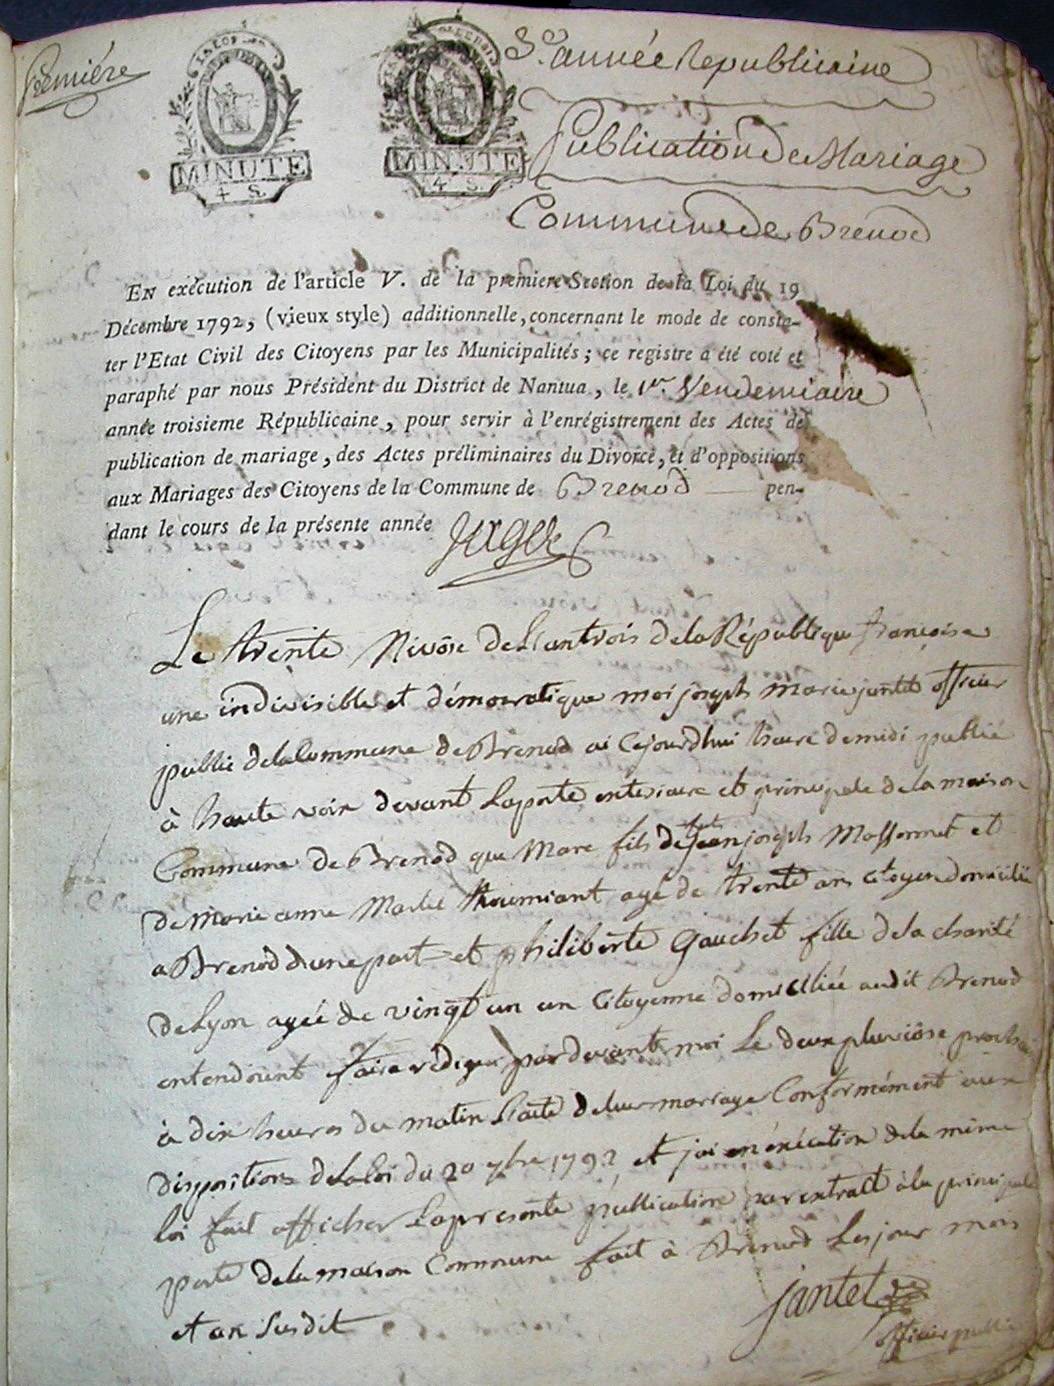 Première
MINUTE
4 S.
MINUTE
4 S.
3e année Republicaine
Publication de Mariage
Commune de Brenod
EN exécution de l'article V. de la premiere Section de la Loi du 19
Décembre 1792, (vieux style) additionnelle, concernant le mode de consta-
ter l'Etat Civil des Citoyens par les Municipalités; ce registre a été coté et
paraphé par nous Président du District de Nantua, le 1er Vendemiaire
année troisieme Républicaine, pour servir à l'enrégistrement des Actes de
publication de mariage, des Actes préliminaires du Divorce, et d'oppositions
aux Mariages des Citoyens de la Commune de Brenod pen-
dant le cours de la présente année
Le trente Nivôse de L'an trois de la République françoise
une indivisible et démocratique moi joseph marie jantet officier
public de la Commune de Brenod ai Cejourdhui heure de midi publié
à haute voix devant La porte exterieure et principale de la maison
Commune de Brenod que Marc fils de feu Jean joseph Massonnet et
de Marie anne Marlie thoumiant agé de trente ans citoyen domicilié
a Brenod d'une part et philiberte Gauchet fille de la charité
de Lyon agée de vingt un an Citoyenne domiciliée audit Brenod
entendoient faire rediger par devant moi Le deux pluviôse prochain
à dix heures du matin L'acte de leur mariage Conformément aux
dispositions de la Loi du 20 7bre 1792 et j'ai en éxécution de la même
loi fait afficher La presente publication par extrait à la principale
porte de la maison Commune fait à Brenod Les jour mois
et an Susdit
jantet
officier public